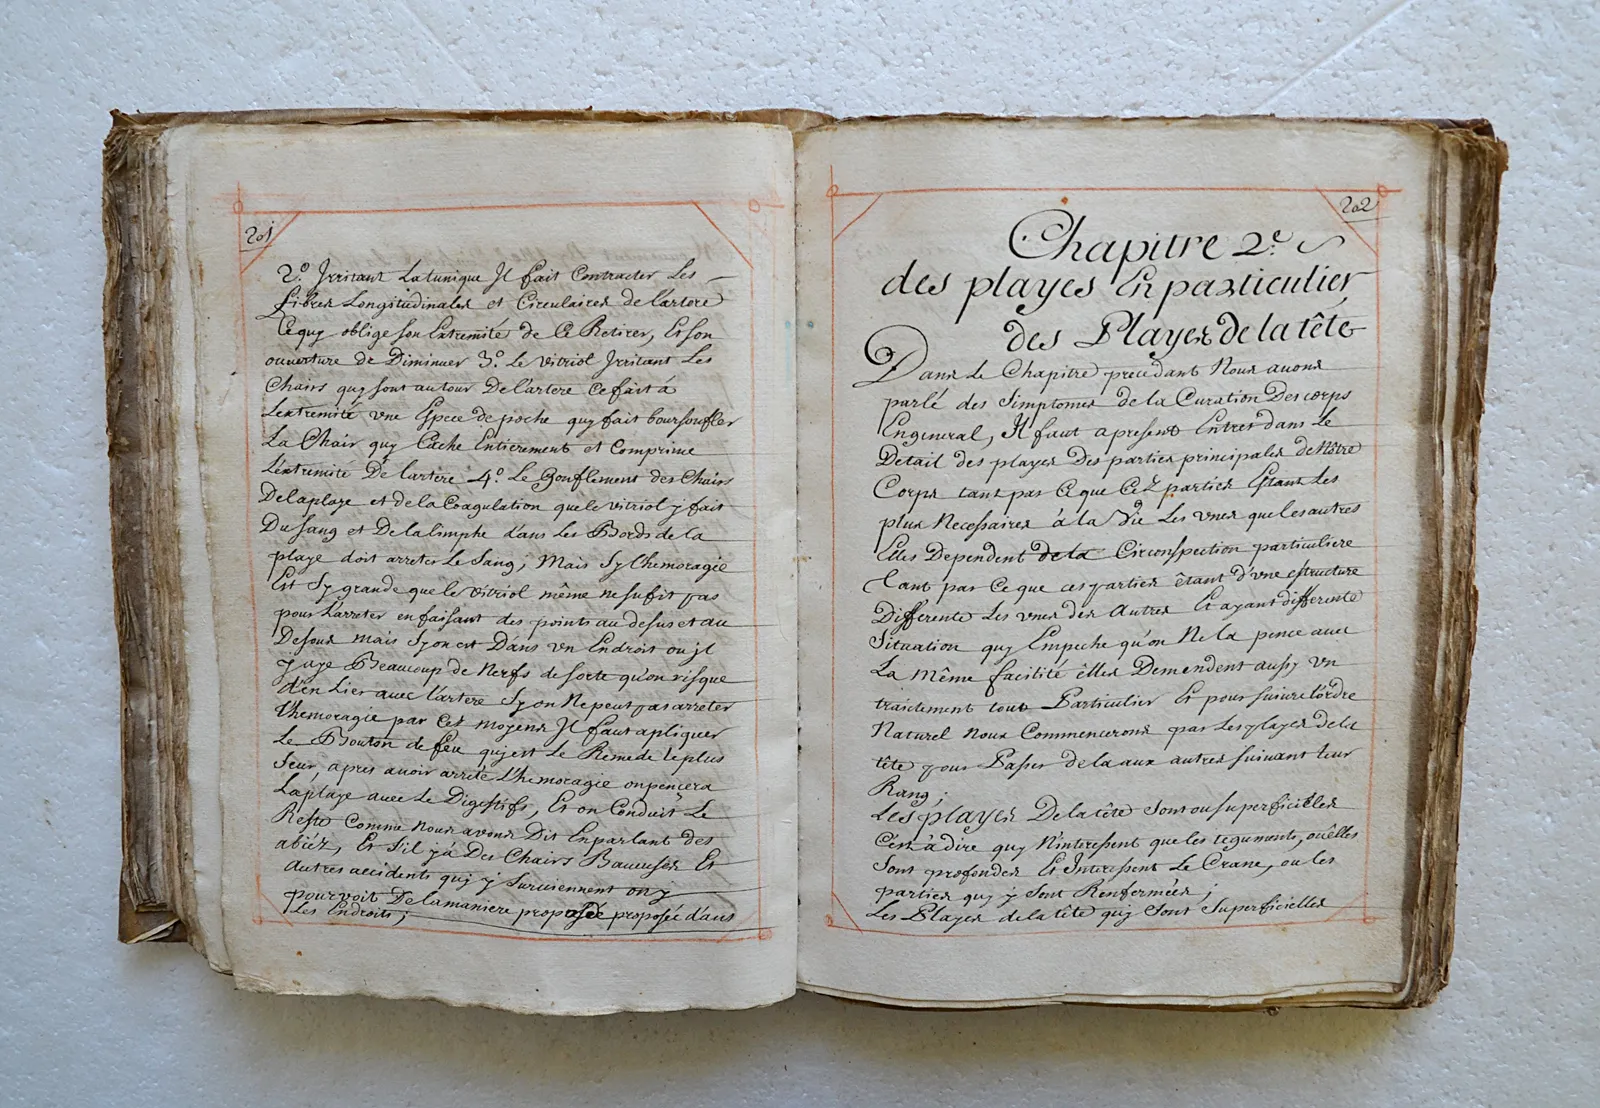 201
2º Jrritant Latunique Jl fait Contracter Les
fibres Longitudinales et Circulaires de L'artere
Cequy oblige son Extremité de Ce Retirer, Et son
ouverture de Diminuer 3º. Le vitriol Jrritant Les
Chairs quy sont autour De L'artere Ce fait à
Lextremité vne Espece de poche quy fait boursoufler
La Chair quy Cache Entierement et Comprime
Lextremité De Lartere 4º. Le Gonflement des Chairs
De laplaye et de la Coagulation que le vitriol y fait
Du sang et De la limphe dans Les Bords de la
playe doit arreter Le Sang, Mais Sy Lhemoragie
Est Sy grande que le vitriol même ne sufit pas
pour L'arreter en faisant des points au desus et au
Desous mais Sy on est Dans vn Endroit ou jl
y aye Beaucoup de Nerfs de sorte qu'on risque
d'en Lier avec L'artere Sy on Ne peut pas arreter
Lhemoragie par Ces moyens Jl faut apliquer
Le Bouton de feu quy est Le Remede le plus
Seur, apres avoir arreté L'hemoragie on pencera
La playe avec Le Digestifs, Et on Conduit Le
Reste Comme Nous avons Dit En parlant des
abiéz, Et S'il y à Des Chairs Baveuses Et
autres accidents quy y Surviennent on y
pourvoit De la maniere proposée proposée dans
Les Endroits;
202
Chapitre 2e
des playes En particulier
des Playes de la tête
Dans Le Chapitre precedant Nous avons
parlé des Simptomes de la Curation Des corps
En general, Jl faut apresent Entrer dans Le
Detail des playes Des parties principales de Nôtre
Corps tant par Ce que Cez parties Etant Les
plus Necessaires à la Vie Les vnes que les autres
Elles Dependent de la Circonspection particuliere
tant par Ce que ces parties êtant d'vne structure
Differente Les vnes des Autres Et ayant differente
Situation quy Empeche qu'on Ne la pence avec
La même facilité êlles Demendent aussy vn
traitement tout Particulier Et pour suivre l'ordre
Naturel Nous Commencerons par Les playes de la
tête pour Passer de la aux autres suivant leur
Rang;
Les playes De la tête Sont ou superficielles
C'est à dire quy N'interessent que les teguments, ou êlles
Sont profondes Et Interessent Le Crane, ou les
parties quy y sont Renfermées;
Les Playes de la tête quy Sont Superficielles